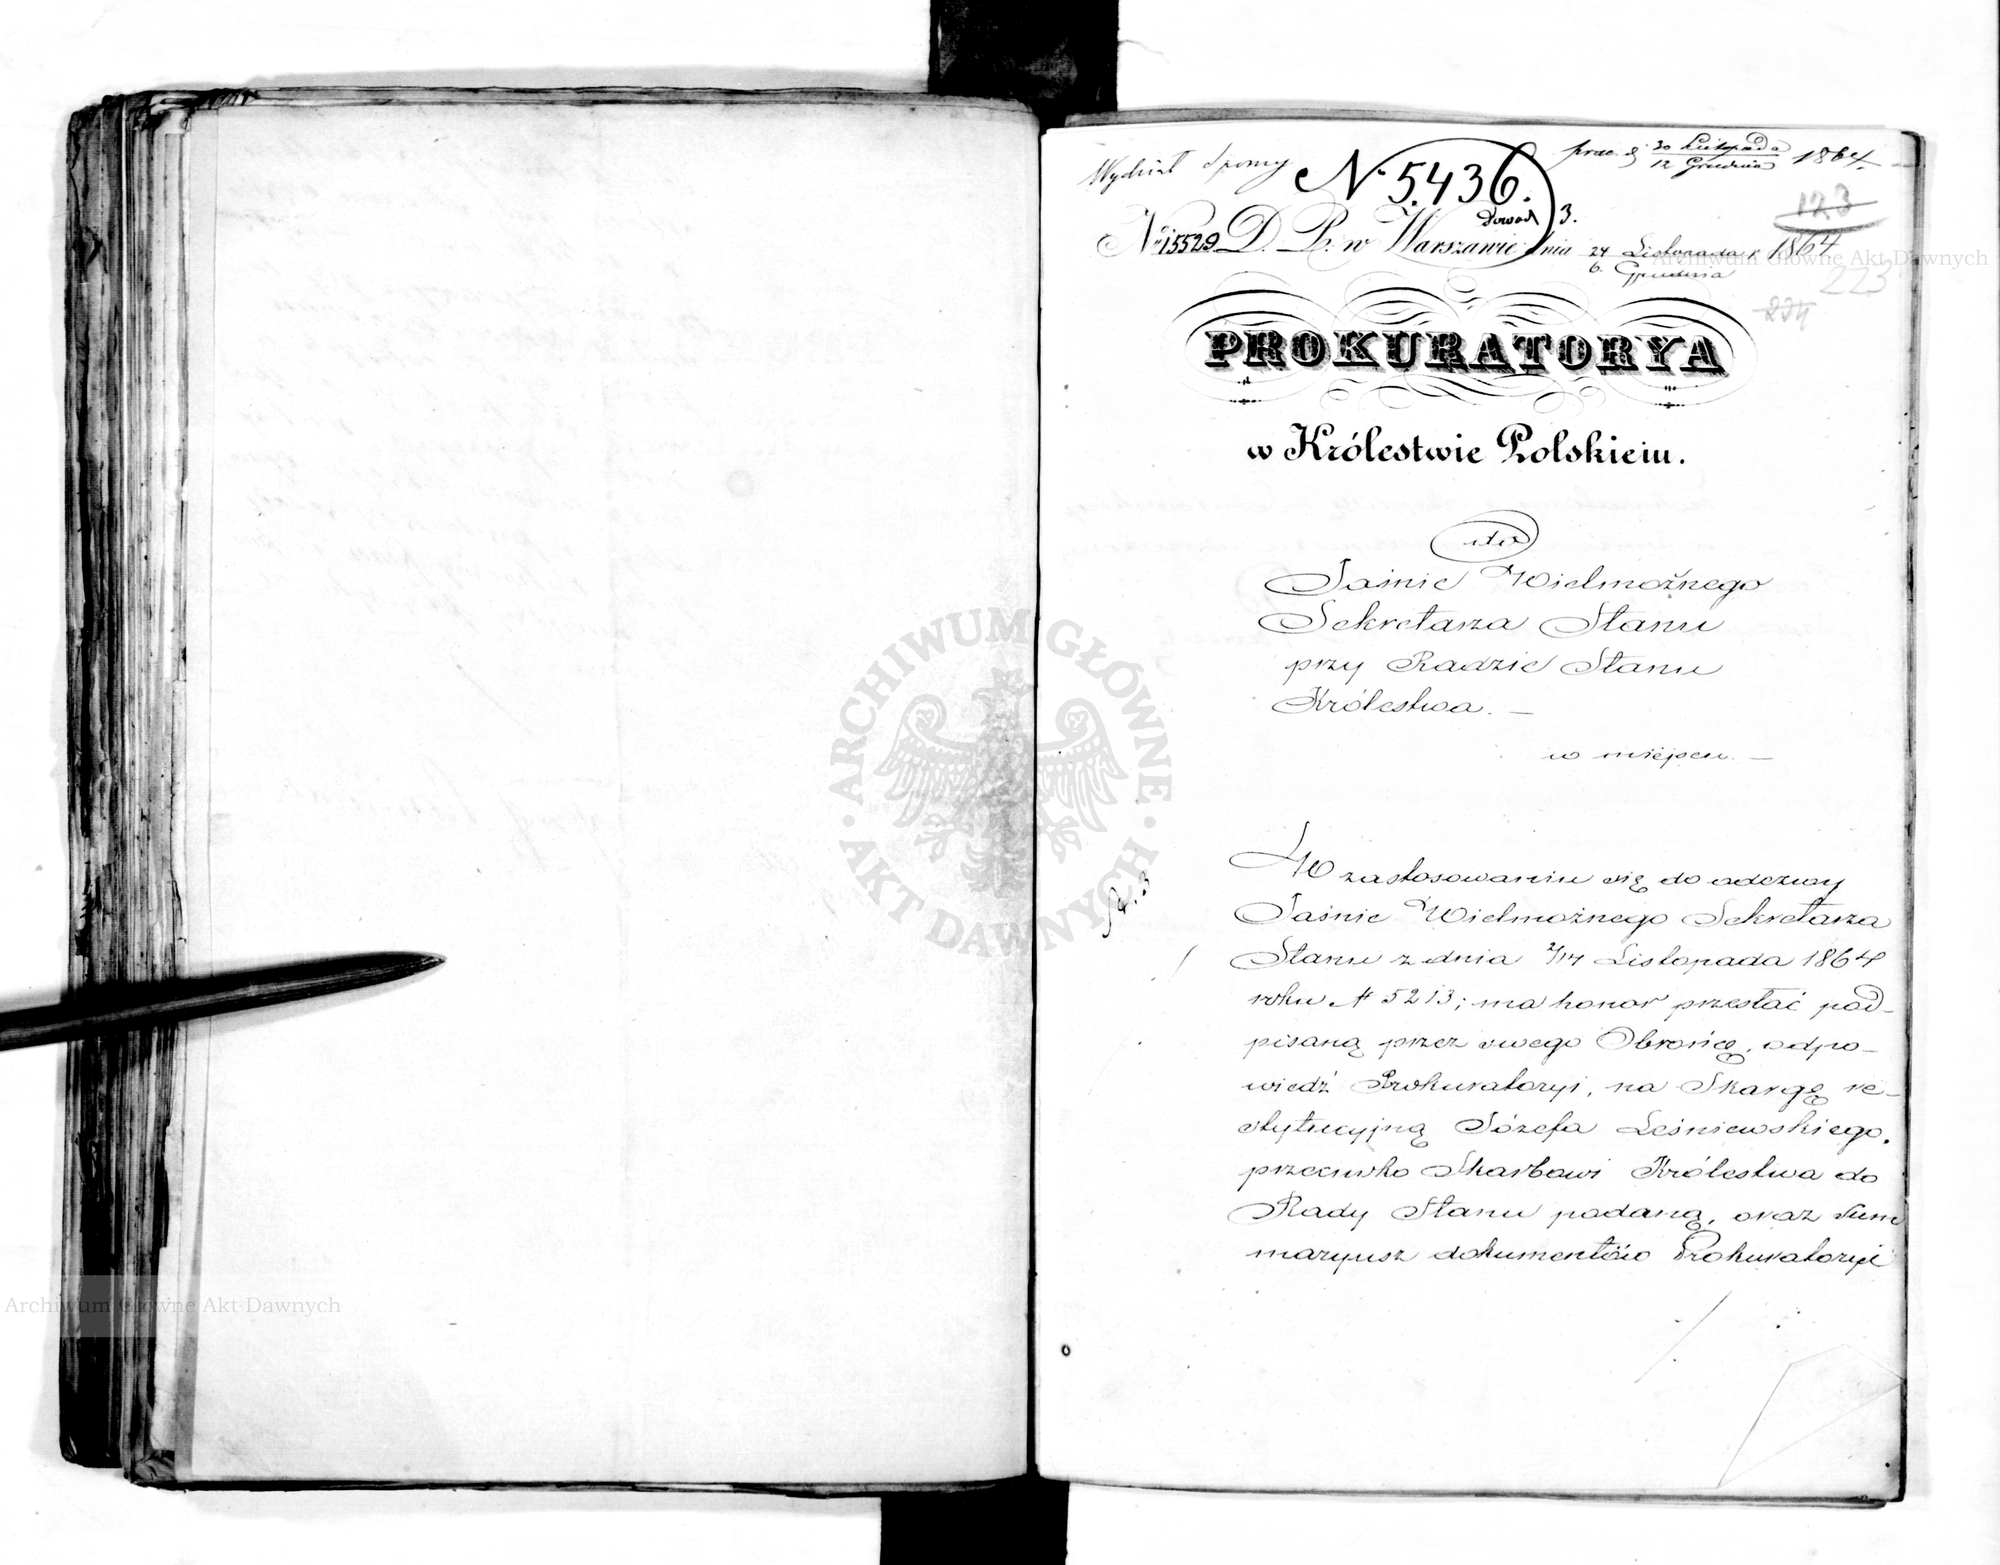 Wydział Sporny
N. 5.436.
30 Listopada
12 Grudnia 1864.
Dowod 3.
123
No. 15529 D. P. w Warszawie dnia 24 Listopada r 1864
6. Grudnia
223
224
PROKURATORYA
w Królestwie Polskiem.
do
Jaśnie Wielmożnego
Sekretarza Stanu
przy Radzie Stanu
Królestwa. —
w miejscu. —
W zastosowaniu się do odezwy
Jaśnie Wielmożnego Sekretarza
Stanu z dnia 2/14 Listopada 1864
roku N 5213; ma honor przesłać pod-
pisaną przez swego Obrońcę, odpo-
wiedź Prokuratoryi, na Skargę re-
stytucyjną Józefa Leśniewskiego.
przeciwko Skarbowi Królestwa do
Rady Stanu podaną, oraz sum
maryusz dokumentów Prokuratoryi
ARCHIWUM GŁÓWNE
AKT DAWNYCH
Archiwum Główne Akt Dawnych
Archiwum Główne Akt Dawnych